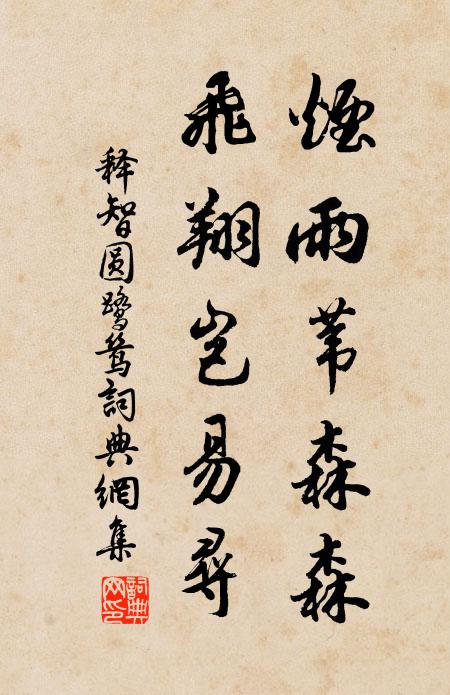 煙雨苇森森
飛翔岂易尋
释智圆鹭鸶詞典網集
詞典网印